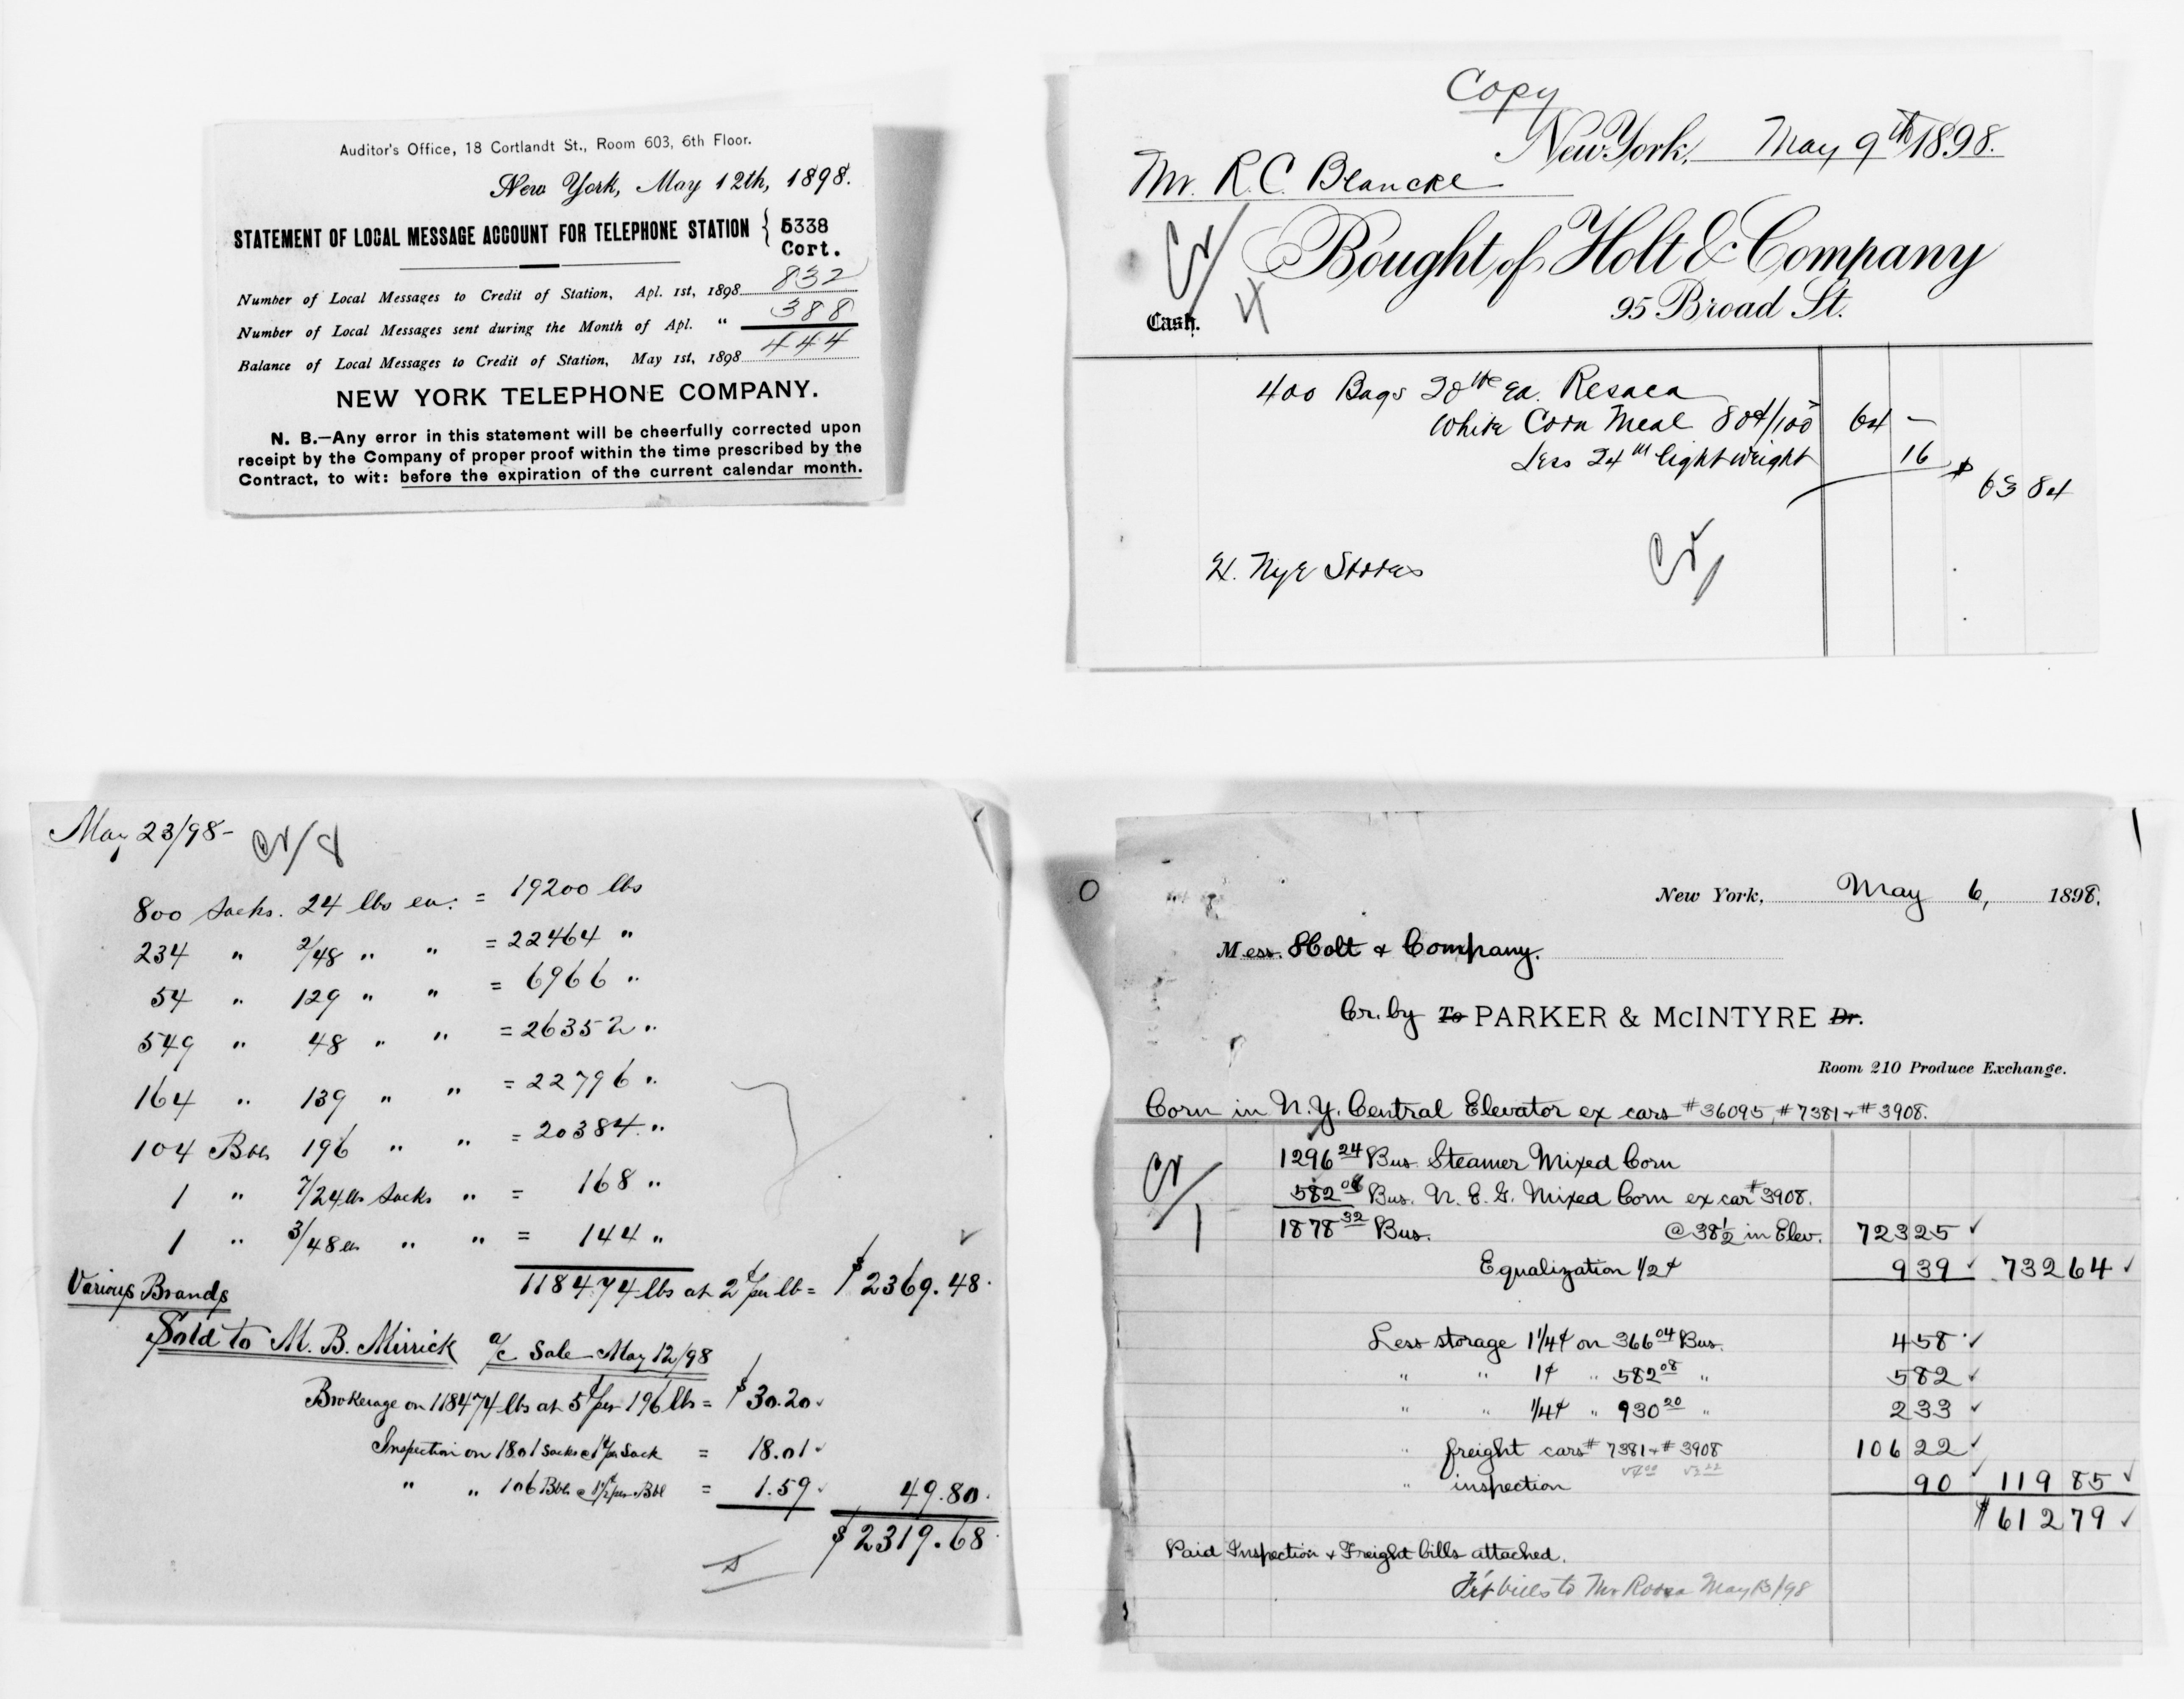 Auditor's Office, 18 Cortlandt St., Room 603, 6th Floor.
New York, May 12th, 1898.
STATEMENT OF LOCAL MESSAGE ACCOUNT FOR TELEPHONE STATION { 5338
Cort.
Number of Local Messages to Credit of Station, Apl. 1st, 1898 832
Number of Local Messages sent during the Month of Apl. " 388
Balance of Local Messages to Credit of Station, May 1st, 1898 444
NEW YORK TELEPHONE COMPANY.
N. B.—Any error in this statement will be cheerfully corrected upon
receipt by the Company of proper proof within the time prescribed by the
Contract, to wit: before the expiration of the current calendar month.
Copy
New York, May 9th 1898.
Mr. R. C. Blancke
Cr/
Bought of Holt & Company
95 Broad St.
Cash. 4
400 Bags 20 ea. Resaca
White Corn Meal 80¢/100 64 —
Less 24 light weight 16 $ 63 84
H. Nye Stores
Cr/
May 23/98-
Cr/
800 Sacks. 24 lbs ea. = 19200 lbs
234 " 2/48 " " = 22464 "
54 " 129 " " = 6966 "
549 " 48 " " = 26352 "
164 " 139 " " = 22796 "
104 Bbls 196 " " = 20384 "
1 " 7/24 lb Sacks " = 168 "
1 " 3/48 " " = 144 "
118474 lbs at 2¢ per lb = $2369.48
Various Brands
Sold to M. B. Mirrick a/c Sale May 12/98
Brokerage on 118474 lbs at 5¢ per 196 lbs = $30.20
Inspection on 1801 Sacks @ 1¢ per Sack = 18.01
" " 106 Bbls @ 1½¢ per Bbl = 1.59 49.80
$2319.68
New York, May 6, 1898.
Mess. Holt & Company.
Cr. by To PARKER & McINTYRE Dr.
Room 210 Produce Exchange.
Corn in N.Y. Central Elevator ex cars #36095, #7381 + #3908.
Cr/1
1296 24 Bus. Steamer Mixed Corn
582 08 Bus. N. E. G. Mixed Corn ex car #3908.
1878 32 Bus. @ 38½ in Elev. 723 25
Equalization 1/2¢ 9 39 732 64
Less storage 1 1/4¢ on 366 04 Bus. 4 58
" " 1¢ " 582 08 " 5 82
" " 1/4¢ " 930 20 " 2 33
" freight cars #7381 + #3908 106 22
" inspection 90 119 85
$612 79
Paid Inspection & Freight bills attached.
bills to Mr May 13/98